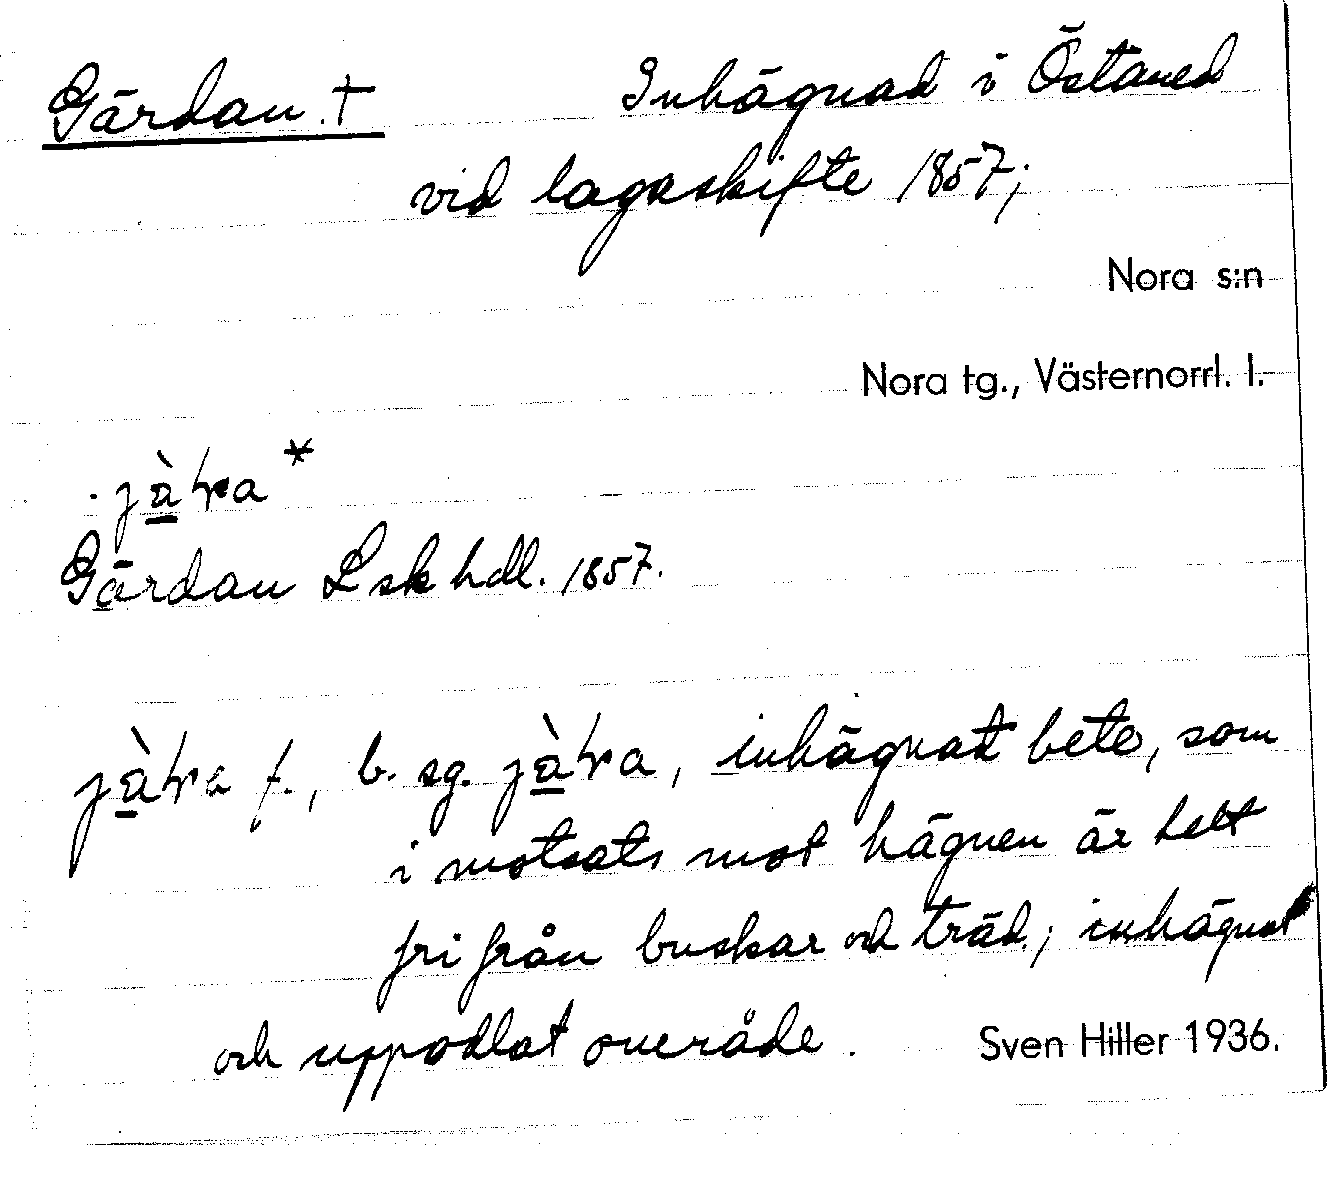 Gärdan † Inhägnad i Östaned
vid lagaskifte 1857;
Nora s:n
Nora tg., Västernorrl. l.
Gärdan Lsk hdl. 1857.
f., b. sg. inhägnat bete, som
i motsats mot hägnen är helt
fri från buskar och träd; inhägnat
och uppodlat område. Sven Hiller 1936.